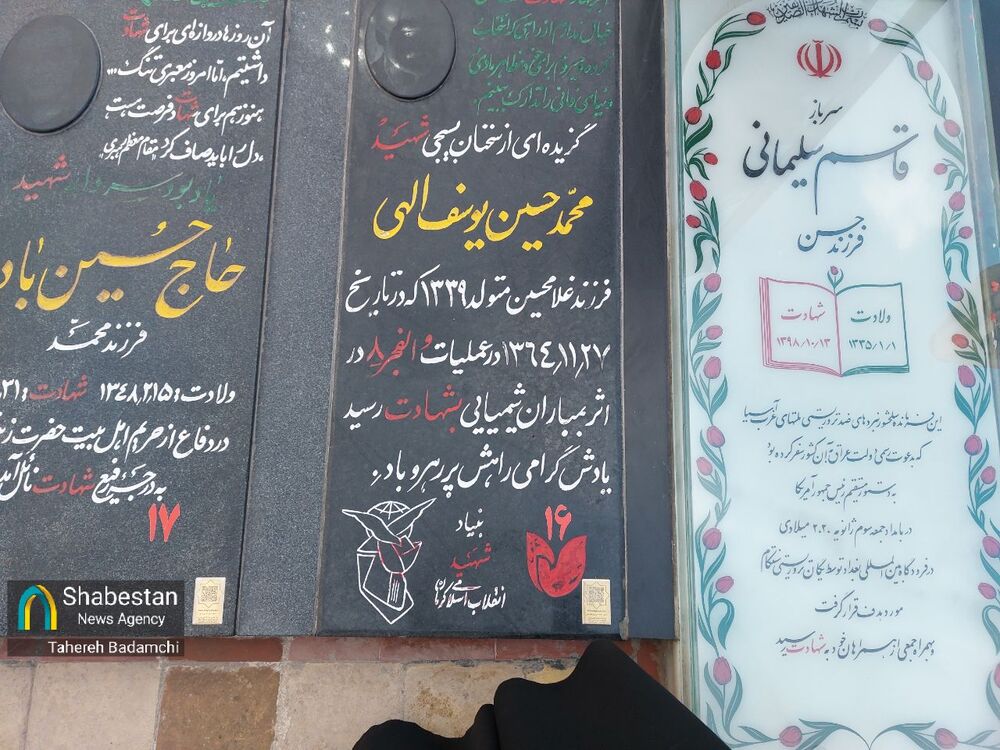 سرباز
قاسم سلیمانی
فرزند حسن
ولادت
۱۳۳۵/۱/۱
شهادت
۱۳۹۸/۱۰/۱۳
که به دعوت رسمی دولت عراق به آن کشور سفر کرده بود
به دستور مستقیم رئیس جمهور آمریکا
در بامداد جمعه سوم ژانویه ۲۰۲۰ میلادی
در فرودگاه بین المللی بغداد توسط یگان تروریستی سنتکام
مورد هدف قرار گرفت
و بهمراه جمعی از همرزمان خود به شهادت رسید
گزیده ای از سخنان بسیجی شهید
محمّد حسین یوسف الهی
فرزند غلامحسین متولد ۱۳۳۹ که در تاریخ
۱۳۶۴,۱۱,۲۷ در عملیات والفجر ۸ در
اثر بمباران شیمیایی بشهادت رسید
یادش گرامی راهش پر رهرو باد.
بنیاد
شهید
انقلاب اسلامی کرمان
۱۶
آن روزها دروازه‌ای برای شهادت
داشتیم، اما امروز معبری تنگ...
هنوز هم برای شهادت فرصت هست
دل را باید صاف کرد. مقام معظم رهبری
شهید
حاج حسین باد
فرزند محمّد
ولادت: ۱۳۴۸,۲,۱۵ شهادت: ۲۱
در دفاع از حریم اهل بیت حضرت
به درجه رفیع شهادت نائل آمد
۱۷
Shabestan
News Agency
Tahereh Badamchi